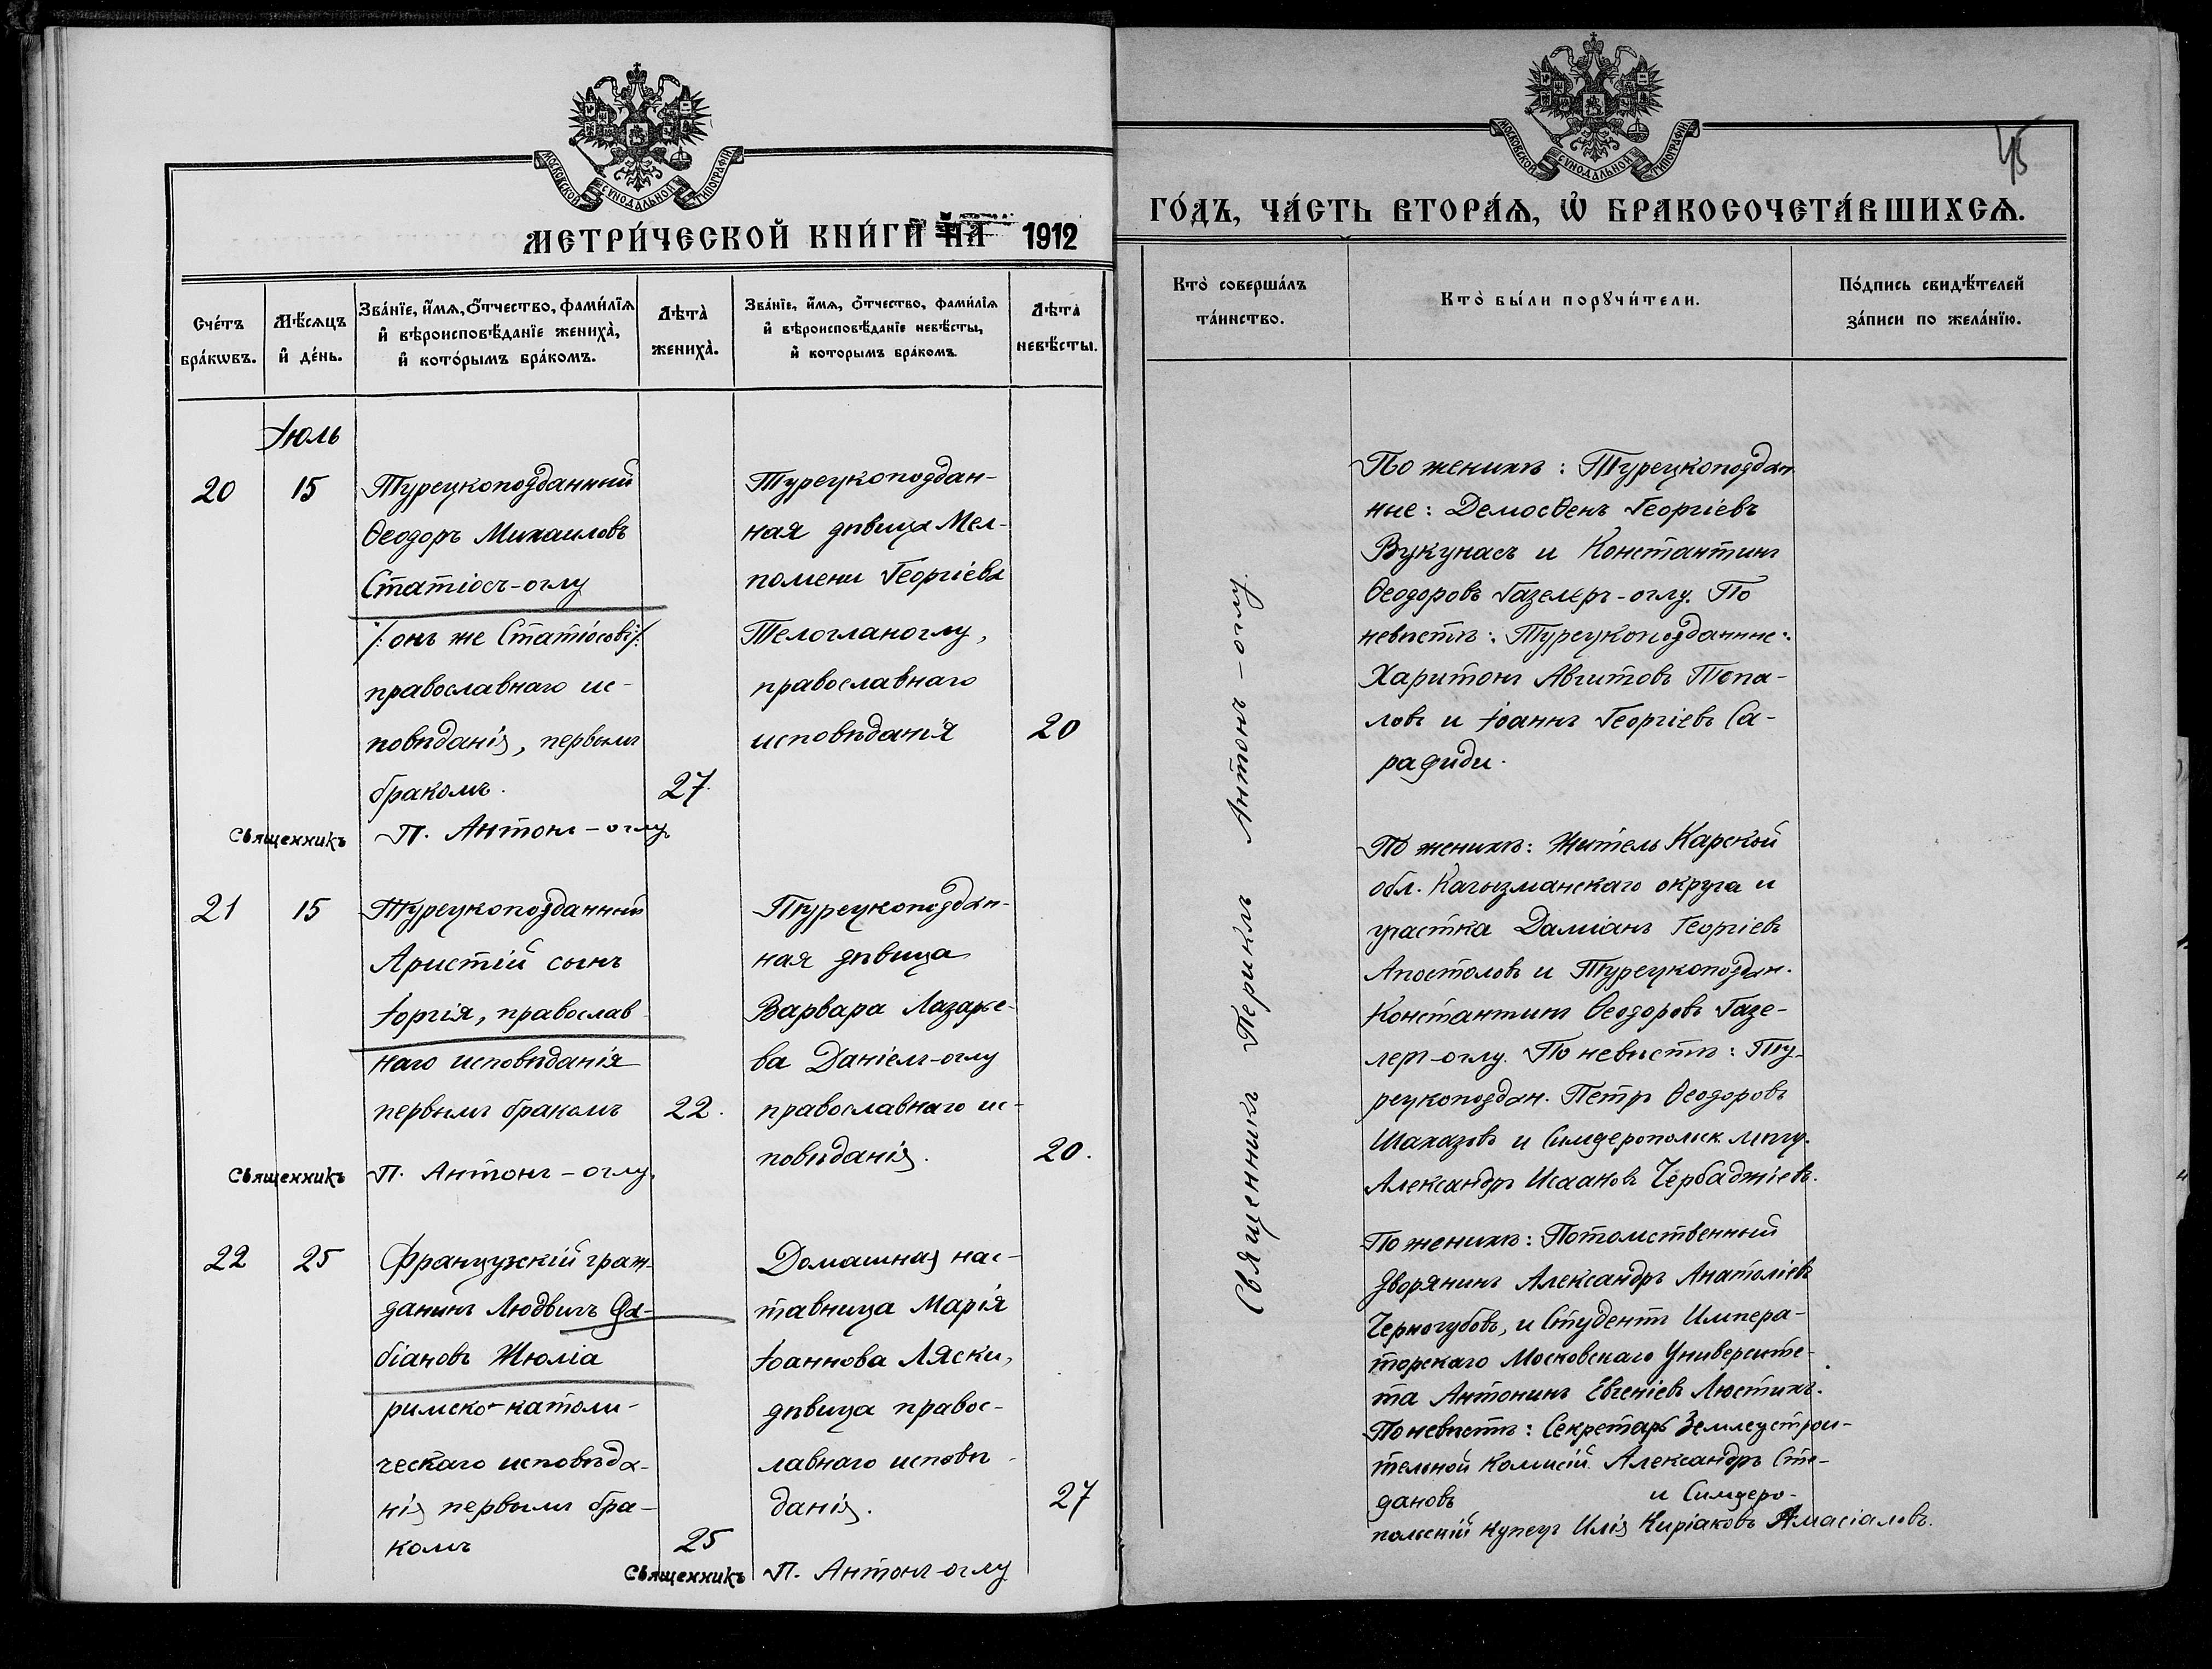 МОСКОВСКОЙ СѴНОДАЛЬНОЙ ТИПОГРАФІИ
МЕТРИ́ЧЕСКОЙ КНИ́ГИ НА 1912
Сче́тъ бра́кѡвъ.
Мѣ́сѧцъ и҆ де́нь.
Зва́нїе, и҆́мѧ, ѻ҆́тчество, фами́лїѧ
и҆ вѣроисповѣ́данїе жениха̀,
и҆ кото́рымъ бра́комъ.
Лѣта̀ жениха̀.
Зва́нїе, и҆́мѧ, ѻ҆́тчество, фами́лїѧ
и҆ вѣроисповѣ́данїе невѣ́сты,
и҆ которымъ бра́комъ.
Лѣта̀ невѣ́сты.
Іюль
20
15
Турецкоподданный
Ѳеодоръ Михаиловъ
Статіосъ-оглу
/: онъ же Статіосовъ :/
православнаго ис-
повѣданія, первымъ
бракомъ.
27.
Турецкоподдан-
ная дѣвица Мел-
помени Георгіева
Телогланоглу,
православнаго
исповѣданія
20
Священникъ П. Антонъ-оглу
21
15
Турецкоподданный
Аристій сынъ
Іоргія, православ-
наго исповѣданія
первымъ бракомъ
22.
Турецкоподдан-
ная дѣвица
Варвара Лазарье-
ва Даніелъ-оглу
православнаго ис-
повѣданія.
20.
Священникъ П. Антонъ-оглу.
22
25
Французскій граж-
данинъ Людвигъ Фа-
біановъ Жюліа
римско-католи-
ческаго исповѣда-
нія первымъ бра-
комъ
25
Домашняя нас-
тавница Марія
Іоаннова Ляски,
дѣвица правос-
лавнаго исповѣ-
данія.
27
Священникъ П. Антонъ-оглу
МОСКОВСКОЙ СѴНОДАЛЬНОЙ ТИПОГРАФІИ
45
ГО́ДЪ, ЧА́СТЬ ВТОРА́Ѧ, Ѡ҆ БРАКОСОЧЕТА́ВШИХСѦ.
Кто̀ соверша́лъ
та́инство.
Кто̀ бы́ли порꙋчи́тели.
По́дпись свидѣ́телей
за́писи по жела́нїю.
Священникъ Периклъ Антонъ-оглу.
По женихѣ: Турецкоподдан-
ные: Демосѳенъ Георгіевъ
Вукунасъ и Константинъ
Ѳеодоровъ Газелеръ-оглу. По
невѣстѣ: Турецкоподданные:
Харитонъ Авгитовъ Попа-
ловъ и Іоаннъ Георгіевъ Са-
рафиди.
По женихѣ: Житель Карской
обл. Кагызманскаго округа и
участка Даміанъ Георгіевъ
Апостоловъ и Турецкоподдан.
Константинъ Ѳеодоровъ Газе-
леръ-оглу. По невѣстѣ: Ту-
рецкоподдан. Петръ Ѳеодоровъ
Шахазовъ и Симферопольск.
Александръ Исааковъ Чербаджіевъ.
По женихѣ: Потомственный
дворянинъ Александръ Анатоліевъ
Черногубовъ, и Студентъ Импера-
торскаго Московскаго Университе-
та Антонинъ Евгеніевъ Люстихъ.
По невѣстѣ: Секретарь Землеустрои-
тельной Комисіи Александръ Сте-
фановъ и Симферо-
польскій купецъ Илія Киріаковъ Амасіаловъ.